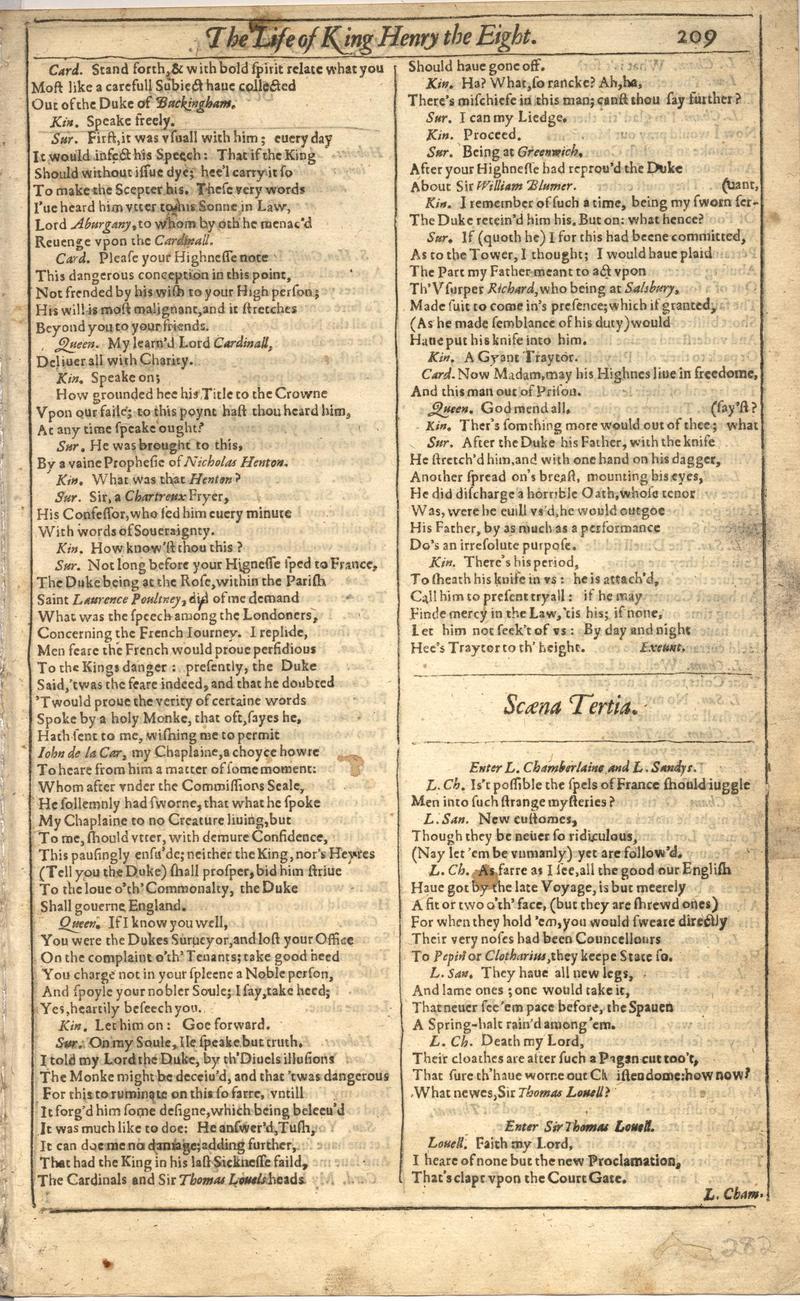 The Life of King Henry the Eight. 209
Card. Stand forth, & with bold ſpirit relate what you
Moſt like a carefull Subiect haue collected
Out of the Duke of Buckingham.
Kin. Speake freely.
Sur. Firſt, it was vſuall with him; euery day
It would infect his Speech: That if the King
Should without iſſue dye; hee'l carry it ſo
To make the Scepter his. Theſe very words
I'ue heard him vtter to his Sonne in Law,
Lord Aburgany, to whom by oth he menac'd
Reuenge vpon the Cardinall.
Card. Pleaſe your Highneſſe note
This dangerous conception in this point,
Not frended by his wiſh to your High perſon;
His will is moſt malignant, and it ſtretches
Beyond you to your friends.
Queen. My learn'd Lord Cardinall,
Deliuer all with Charity.
Kin. Speake on;
How grounded hee his Title to the Crowne
Vpon our faile; to this poynt haſt thou heard him,
At any time ſpeake ought?
Sur. He was brought to this,
By a vaine Propheſie of Nicholas Henton.
Kin. What was that Henton?
Sur. Sir, a Chartreux Fryer,
His Confeſſor, who fed him euery minute
With words of Soueraignty.
Kin. How know'ſt thou this?
Sur. Not long before your Hignesſe ſped to France,
The Duke being at the Roſe, within the Pariſh
Saint Laurence Poultney, did of me demand
What was the ſpeech among the Londoners,
Concerning the French Iourney. I replide,
Men feare the French would proue perfidious
To the Kings danger: preſently, the Duke
Said, 'twas the feare indeed, and that he doubted
'Twould proue the verity of certaine words
Spoke by a holy Monke, that oft, ſayes he,
Hath ſent to me, wiſhing me to permit
Iohn de la Car, my Chaplaine, a choyce howre
To heare from him a matter of ſome moment:
Whom after vnder the Commiſſions Seale,
He ſollemnly had ſworne, that what he ſpoke
My Chaplaine to no Creature liuing, but
To me, ſhould vtter, with demure Confidence,
This pauſingly enſu'de; neither the King, nor's Heyres
(Tell you the Duke) ſhall proſper, bid him ſtriue
To the loue o'th' Commonalty, the Duke
Shall gouerne England.
Queen. If I know you well,
You were the Dukes Surueyor, and loſt your Office
On the complaint o'th' Tenants; take good heed
You charge not in your ſpleene a Noble perſon,
And ſpoyle your nobler Soule; I ſay, take heed;
Yes, heartily beſeech you.
Kin. Let him on: Goe forward.
Sur. On my Soule, Ile ſpeake but truth.
I told my Lord the Duke, by th'Diuels illuſions
The Monke might be deceiu'd, and that 'twas dangerous
For this to ruminate on this ſo farre, vntill
It forg'd him ſome deſigne, which being beleeu'd
It was much like to doe: He anſwer'd, Tuſh,
It can doe me no damage; adding further,
That had the King in his laſt Sickneſſe faild,
The Cardinals and Sir Thomas Louels heads
Should haue gone off.
Kin. Ha? What, ſo rancke? Ah, ha,
There's miſchieſe in this man; canſt thou ſay further?
Sur. I can my Liedge.
Kin. Proceed.
Sur. Being at Greenwich,
After your Highneſſe had reprou'd the Duke
About Sir William Blumer. (uant,
Kin. I remember of ſuch a time, being my ſworn ſer-
The Duke retein'd him his. But on: what hence?
Sur. If (quoth he) I for this had beene committed,
As to the Tower, I thought; I would haue plaid
The Part my Father meant to act vpon
Th'Vſurper Richard, who being at Salsbury,
Made ſuit to come in's preſence; which if granted,
(As he made ſemblance of his duty) would
Haue put his knife into him.
Kin. A Gyant Traytor.
Card. Now Madam, may his Highnes liue in freedome,
And this man out of Priſon.
Queen. God mend all. (ſay'ſt?
Kin. Ther's ſomthing more would out of thee; what
Sur. After the Duke his Father, with the knife
He ſtretch'd him, and with one hand on his dagger,
Another ſpread on's breaſt, mounting his eyes,
He did diſcharge a horrible Oath, whoſe tenor
Was, were he euill vs'd, he would outgoe
His Father, by as much as a performance
Do's an irreſolute purpoſe.
Kin. There's his period,
To ſheath his knife in vs: he is attach'd,
Call him to preſent tryall: if he may
Finde mercy in the Law, 'tis his; if none,
Let him not ſeek't of vs: By day and night
Hee's Traytor to th' height. Exeunt.
Scæna Tertia.
Enter L. Chamberlaine and L. Sandys.
L. Ch. Is't poſſible the ſpels of France ſhould iuggle
Men into ſuch ſtrange myſteries?
L. San. New cuſtomes,
Though they be neuer ſo ridiculous,
(Nay let 'em be vnmanly) yet are follow'd.
L. Ch. As farre as I ſee, all the good our Engliſh
Haue got by the late Voyage, is but meerely
A fit or two o'th' face, (but they are ſhrewd ones)
For when they hold 'em, you would ſweare directly
Their very noſes had been Councellours
To Pepin or Clotharius, they keepe State ſo.
L. San. They haue all new legs,
And lame ones; one would take it,
That neuer ſee 'em pace before, the Spauen
A Spring-halt rain'd among 'em.
L. Ch. Death my Lord,
Their cloathes are after ſuch a Pagan cut too't,
That ſure th'haue worne out Ch iſtendome: how now?
What newes, Sir Thomas Louell?
Enter Sir Thomas Louell.
Louell. Faith my Lord,
I heare of none but the new Proclamation,
That's clapt vpon the Court Gate.
L. Cham.
282